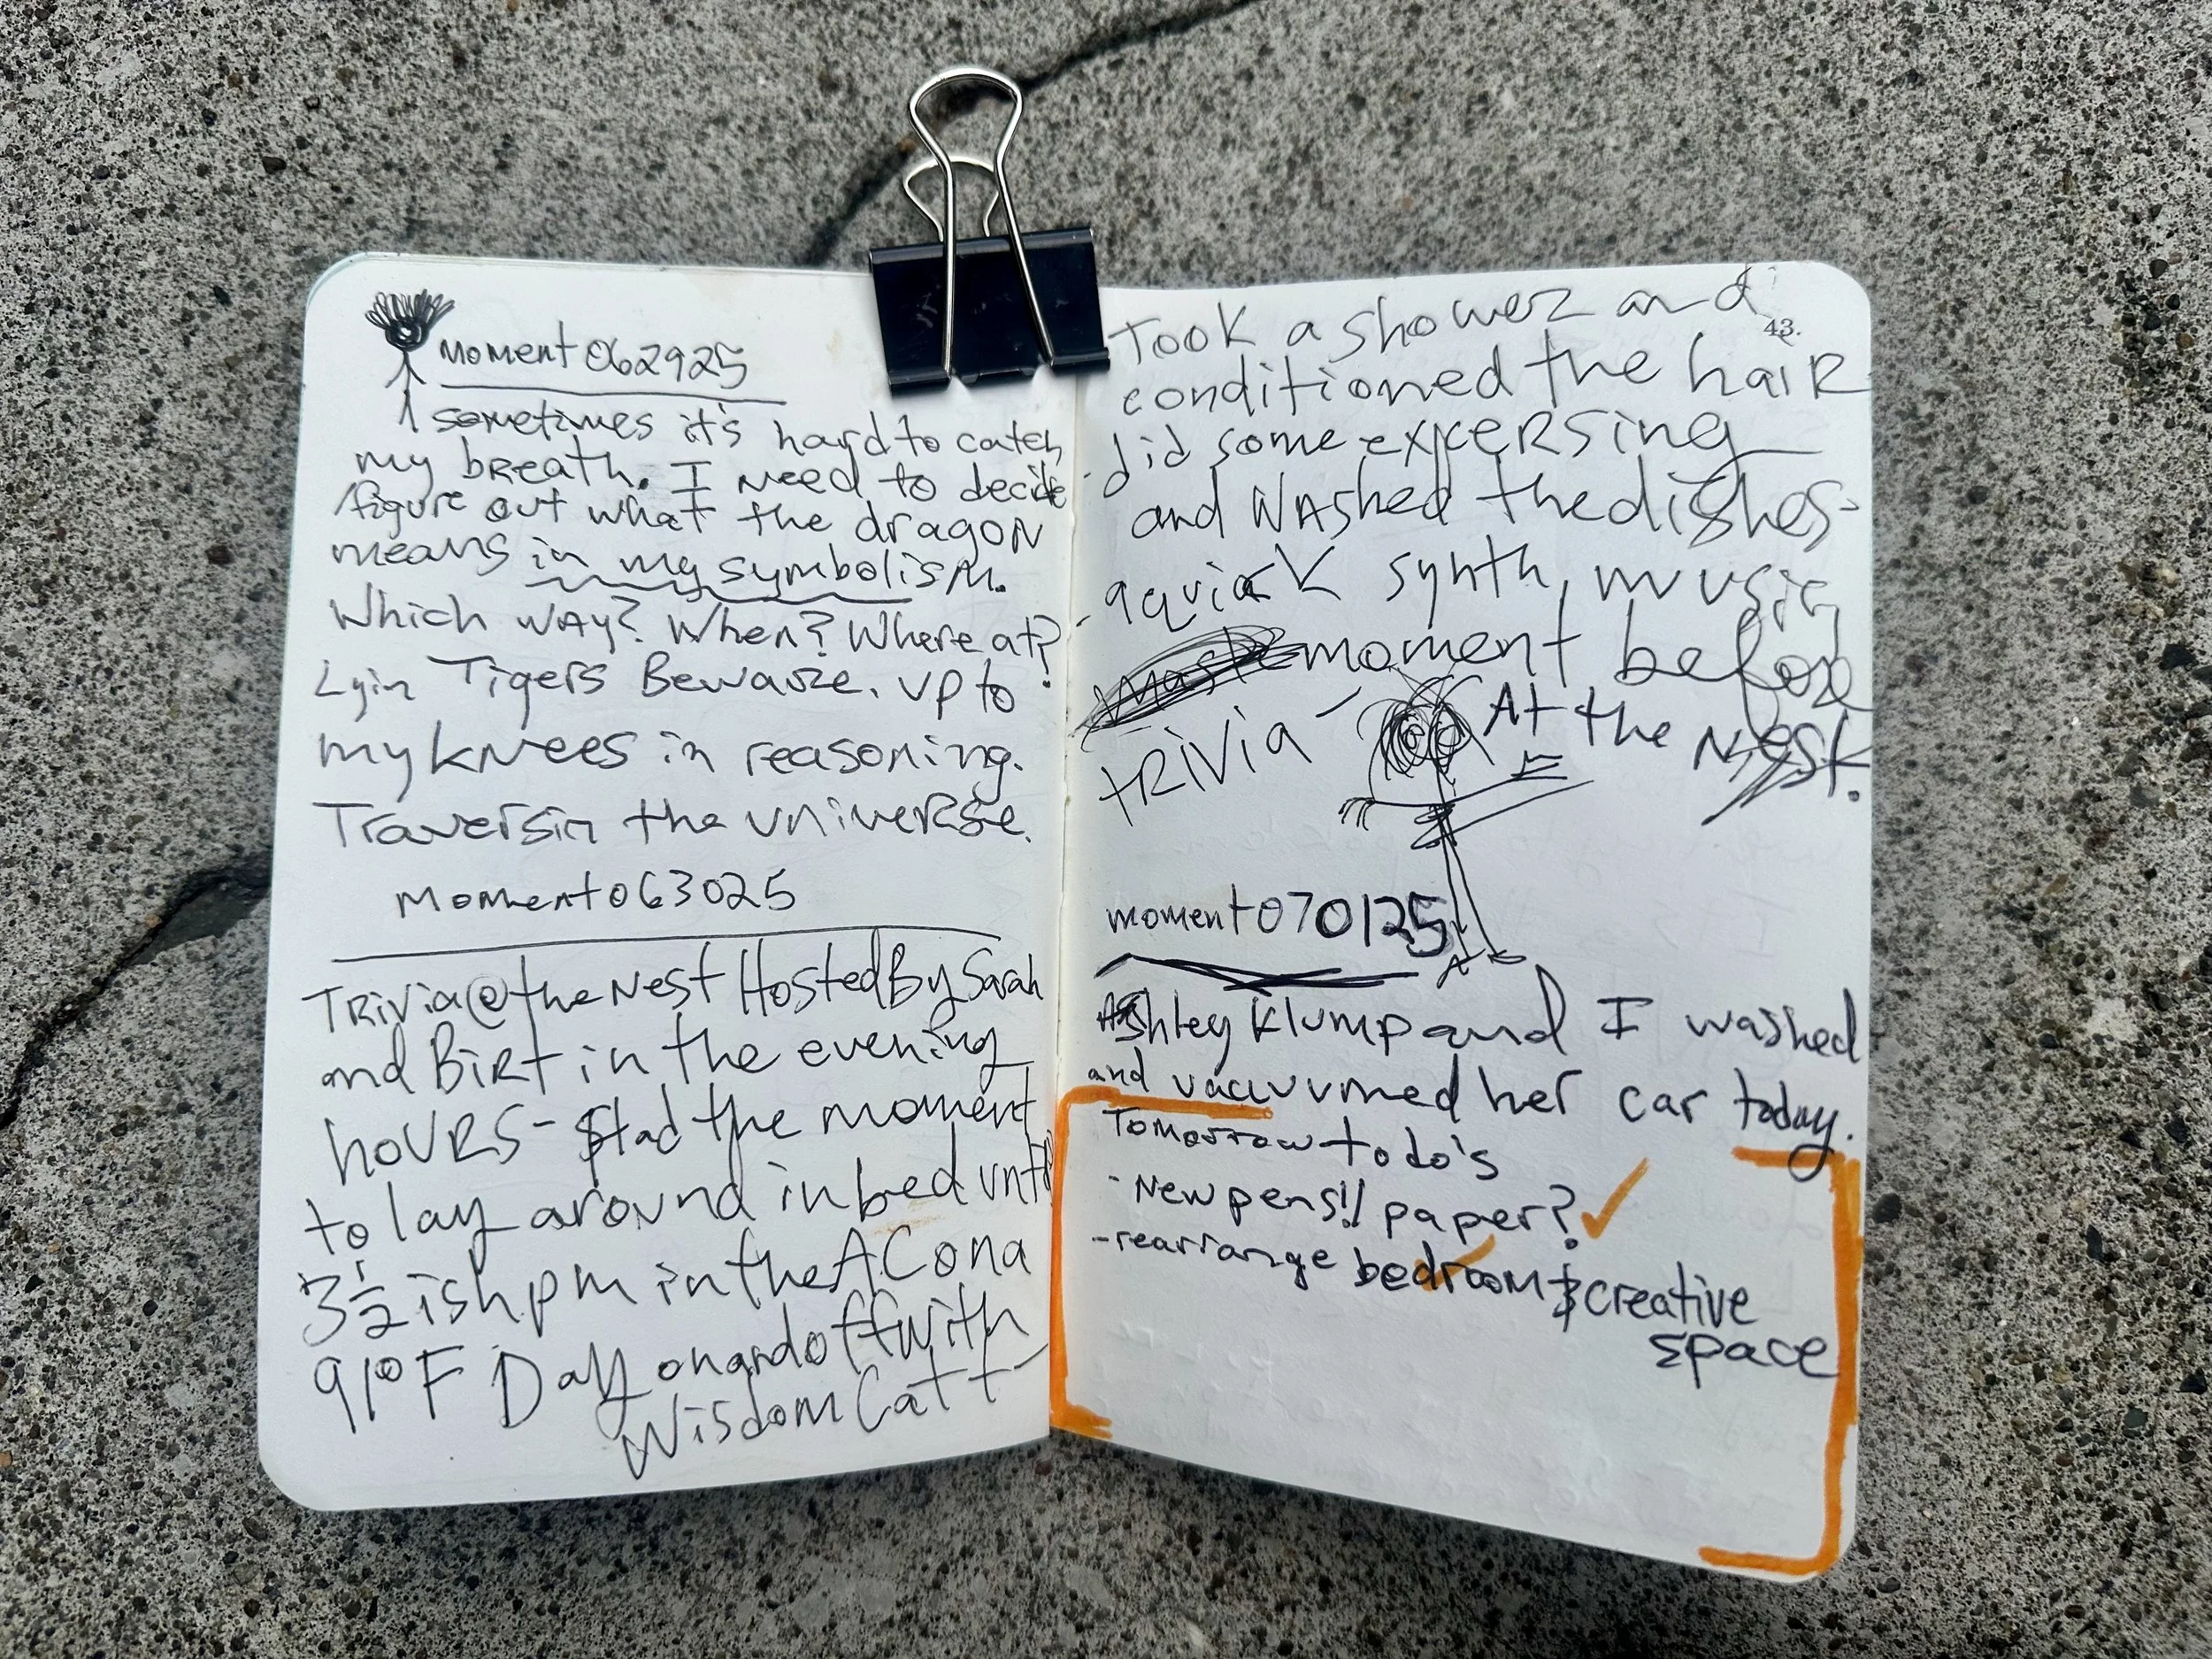 moment062925
sometimes it's hard to catch
my breath. I need to decide
figure out what the dragon
means in my symbolism.
Which way? When? Where at?
Lyin Tigers Beware. up to
my knees in reasoning.
Traversin the universe.
Moment063025
Trivia@the Nest Hosted By Sarah
and Birt in the evening
hours - had the moment
to lay around in bed until
3½ish pm in the AC on a
91°F Day on and off with
Wisdom Catt
43.
Took a shower and
conditioned the hair
- did some expersing
and washed the dishes -
- a quick synth, music
moment before
trivia - At the Nest.
moment070125
Ashley Klump and I washed
and vacuumed her car today.
Tomorrow to do's
- New pens!! paper? ✓
- rearrange bedroom & creative
space